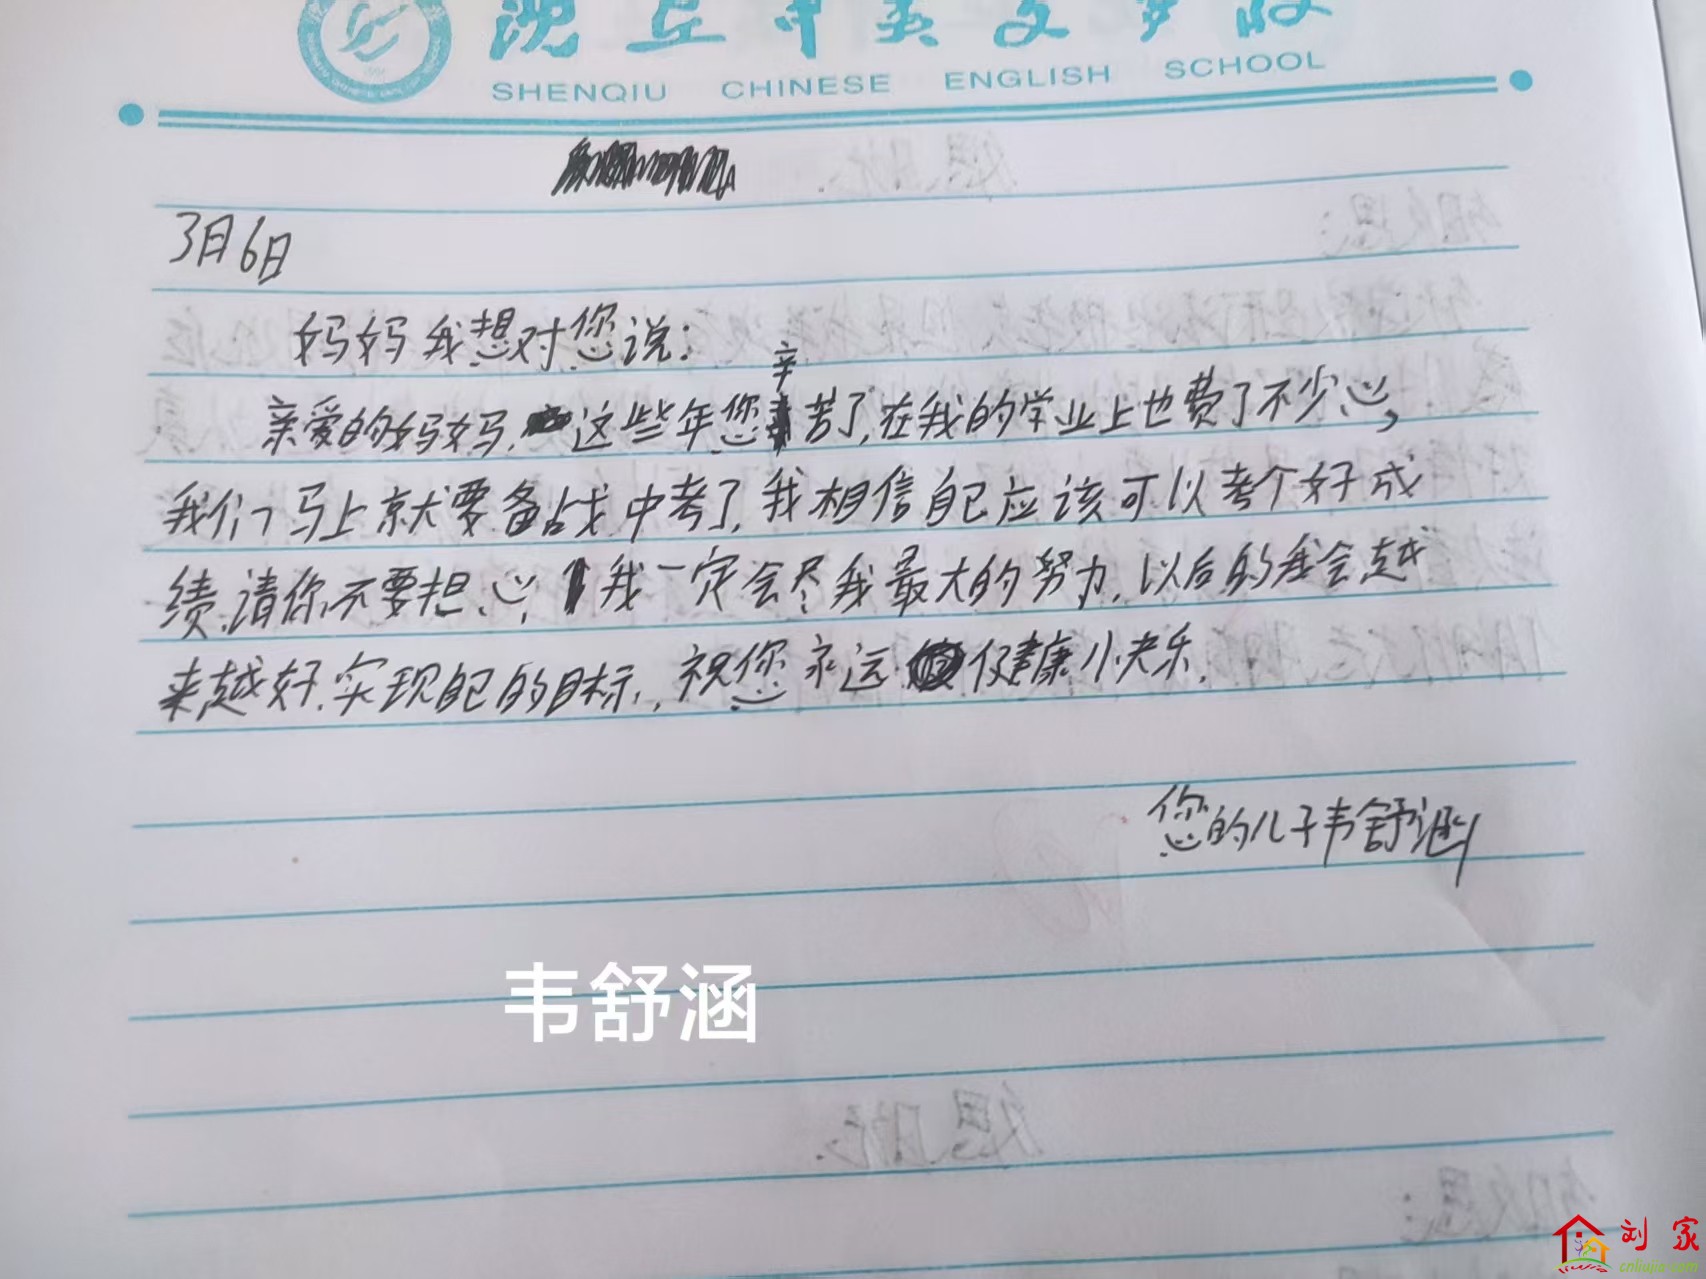 SHENQIU CHINESE ENGLISH SCHOOL
3月6日
妈妈我想对您说:
亲爱的妈妈,这些年您辛苦了,在我的学业上也费了不少心,
我们马上就要备战中考了,我相信自己应该可以考个好成
绩,请你不要担心,我一定会尽我最大的努力,以后的我会越
来越好,实现自己的目标,祝您永远健康快乐.
您的儿子韦舒涵
韦舒涵
刘家
cnliujia.com